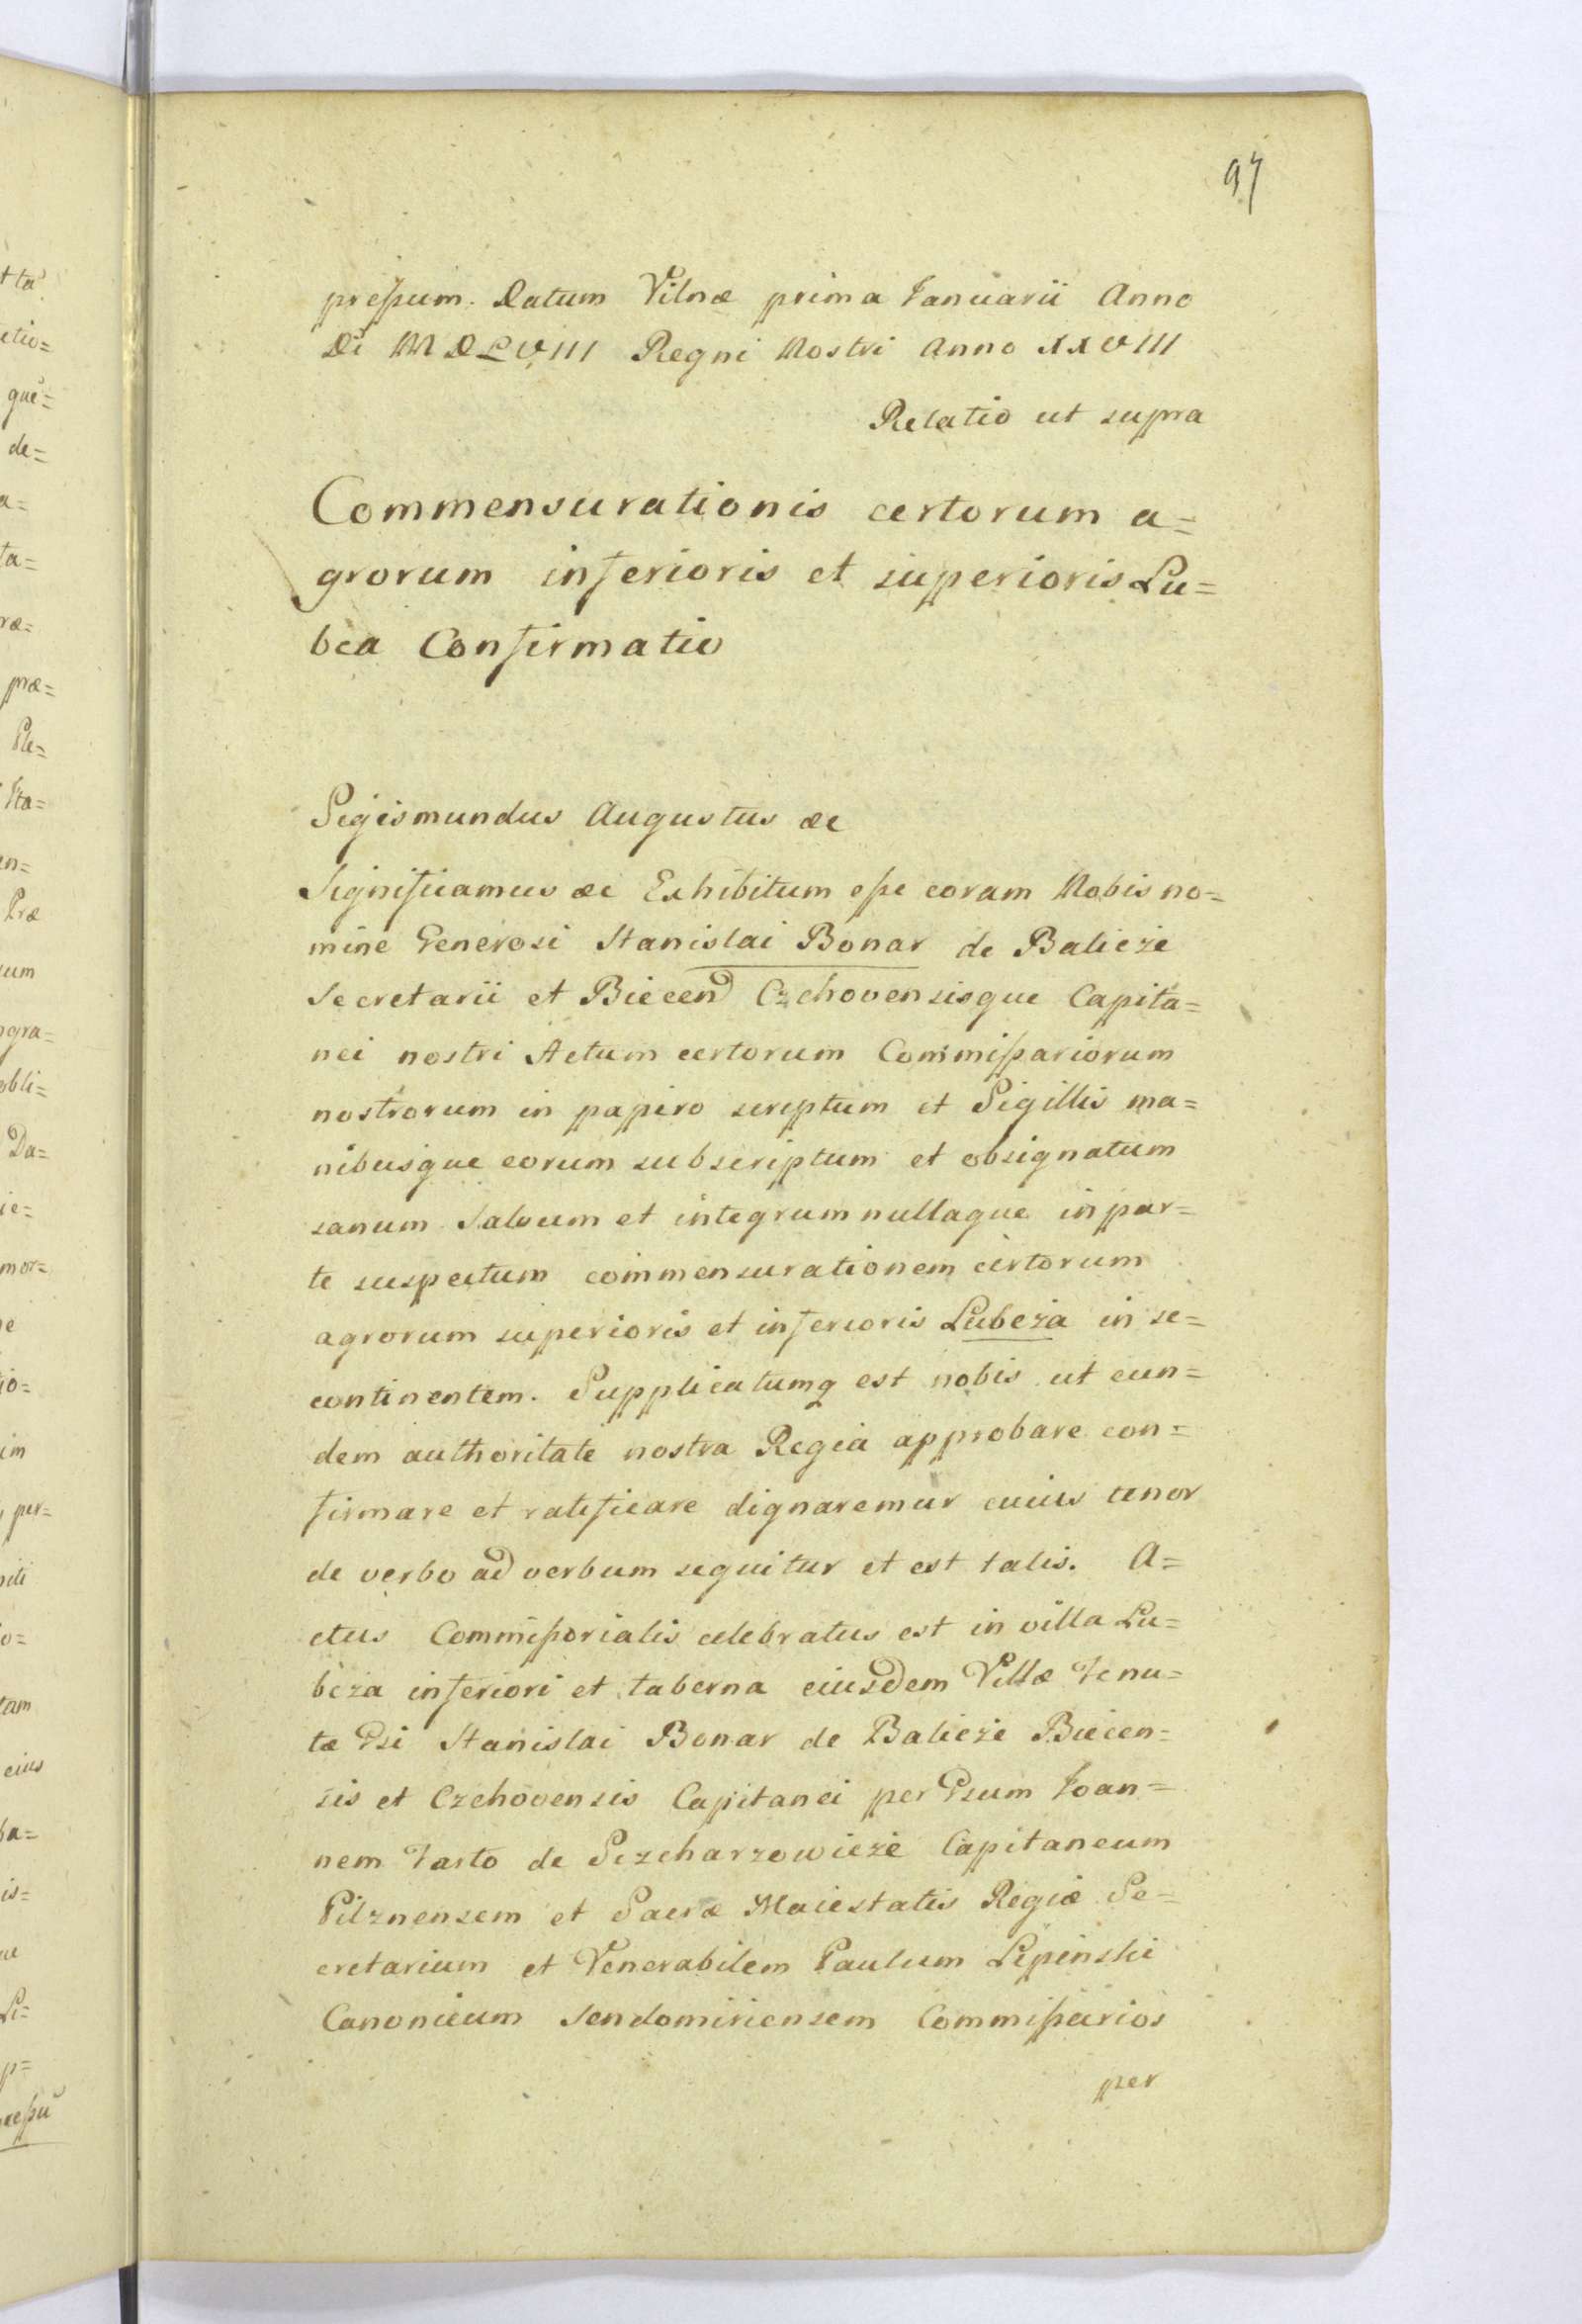 97
pressum. Datum Vilnæ prima Januarii Anno
Di MDLVIII Regni Nostri Anno XXVIII
Relatio ut supra
Commensurationis certorum a=
grorum inferioris et superioris Lu=
bca Confirmatio
Sigismundus Augustus &c
Significamus &c Exhibitum esse coram Nobis no=
mine Generosi Stanislai Bonar de Balicze
Secretarii et Biecen Czchovensisque Capita=
nei nostri Actum certorum Commissariorum
nostrorum in papiro scriptum et Sigillis ma=
nibusque eorum subscriptum et obsignatum
sanum Salvum et integrum nullaque in par=
te suspectum commensurationem certorum
agrorum superioris et inferioris Lubcza in se=
continentem. Supplicatumq est nobis ut eun=
dem authoritate nostra Regia approbare con=
firmare et ratificare dignaremur cuius tenor
de verbo ad verbum sequitur et est talis. A=
ctus Commissorialis celebratus est in villa Lu=
bcza inferiori et taberna eiusdem Villæ Tenu=
tæ Gsi Stanislai Bonar de Balicze Biecen=
sis et Czchovensis Capitanei per Gsum Joan=
nem Tarło de Sczcharzowicze Capitaneum
Pilznensem et Sacræ Maiestatis Regiæ Se=
cretarium et Venerabilem Paulum Lipinski
Canonicum Sendomiriensem Commissarios
per
tta
ctio=
que=
de=
a=
ta=
ræ=
præ=
Ple=
Sta=
en=
Præ
um
gra=
obli=
Da=
ie=
mor=
e
io=
im
per=
o=
tam
eius
ba=
is=
ue
Li=
p=